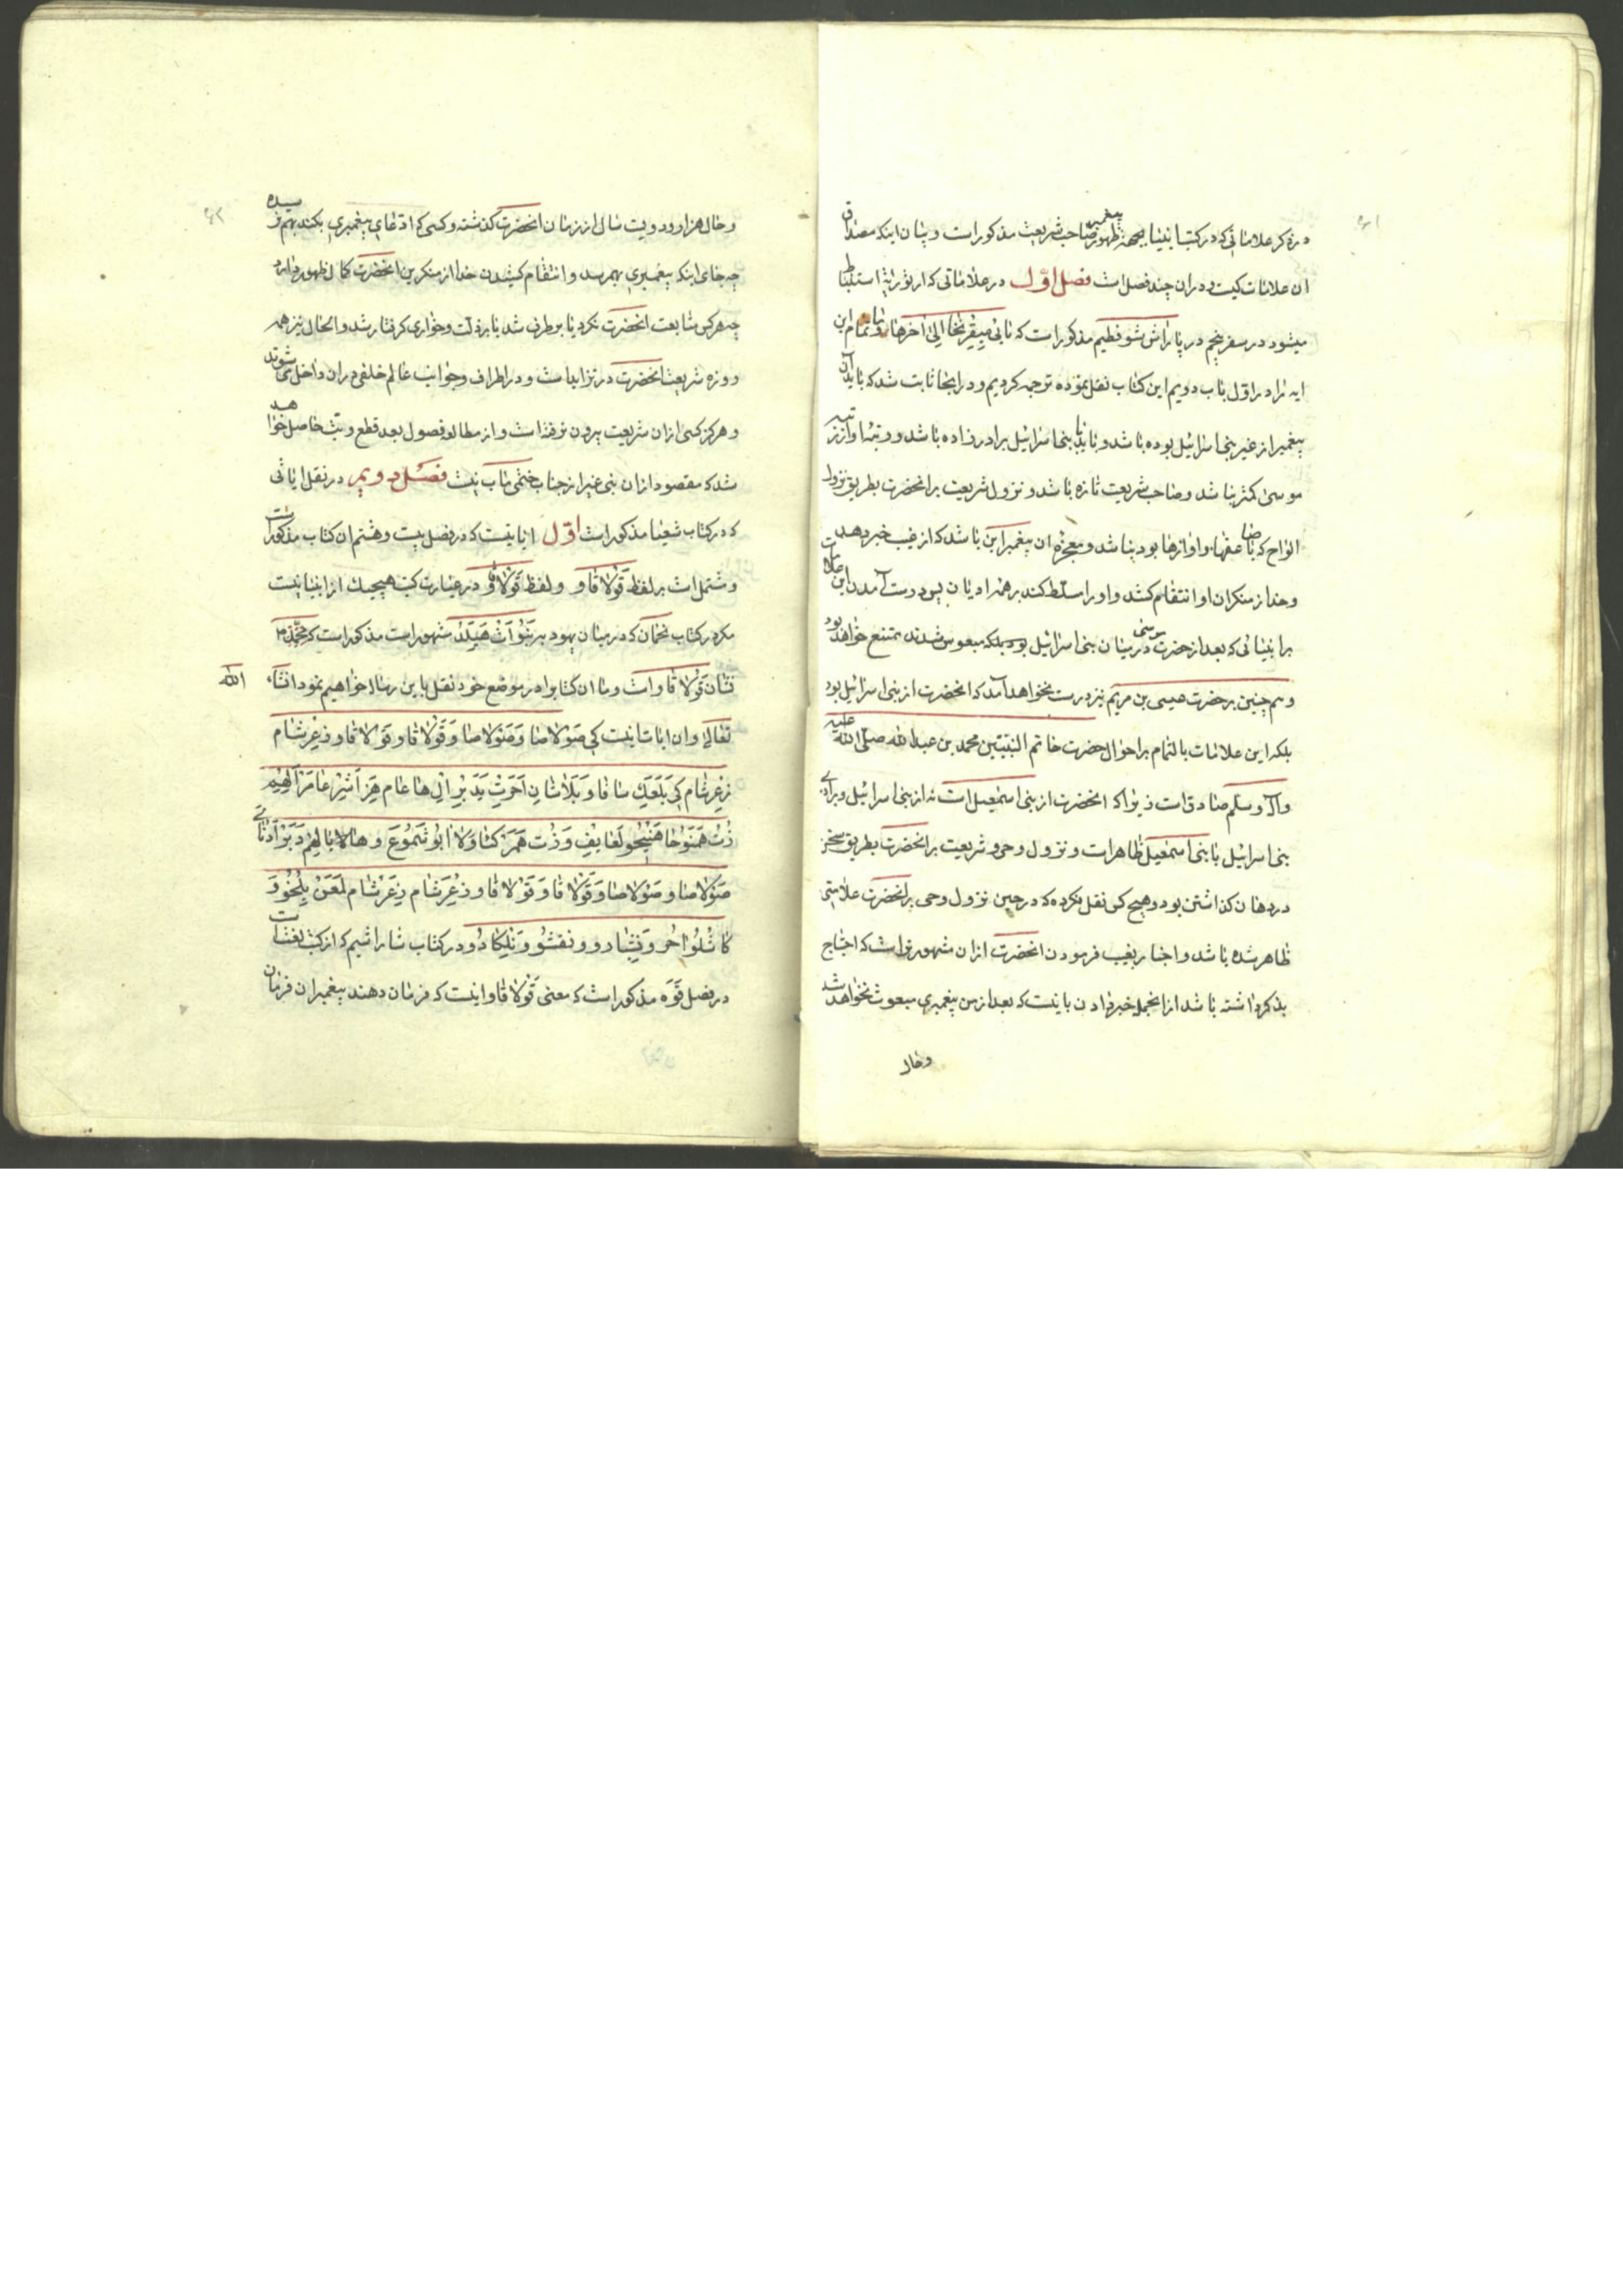 ۶۱
در ذکر علاماتی که در کتب انبیا بجهة ظهور پیغمبر صاحب شریعت مذکور است و بیان اینکه مصداق
ان علامات کیست و در ان چند فصل است فصل اول در علاماتی که از توریة استنباط
میشود در سفر پنجم در پاراش شوفطیم مذکور است که نابی میقربخا الی اخرها و ما تمام این
ایه را در اول باب دویم این کتاب نقل نموده ترجمه کردیم و در اینجا ثابت شد که باید آن
پیغمبر از غیر بنی اسرائیل بوده باشد و باید با بنی اسرائیل برادرزاده باشد و رتبه او از رتبه
موسی کمتر نباشد و صاحب شریعت تازه باشد و نزول شریعت بر انحضرت بطریق نزول
الواح که با صاعقها و اوازها بود نباشد و معجزه ان پیغمبر این باشد که از غیب خبر دهد
و خدا از منکران او انتقام کشد و او را مسلط کند بر همه ادیان پس درست آمدن این علامات
بر انبیائی که بعد از حضرت موسی در میان بنی اسرائیل بود بلکه مبعوس شدند ممتنع خواهد بود
و همچنین بر حضرت عیسی بن مریم نیز درست نخواهد آمد که انحضرت از بنی اسرائیل بود
بلکه این علامات بالتمام بر احوال حضرت خاتم النبیین محمد بن عبدالله صلی الله علیه
و آله و سلم صادق است زیرا که انحضرت از بنی اسمعیل است نه از بنی اسرائیل و برادری
بنی اسرائیل با بنی اسمعیل ظاهر است و نزول وحی و شریعت بر انحضرت بطریق سخن
در دهان گذاشتن بود و هیچ کس نقل نکرده که در حین نزول وحی بر انحضرت علامتی
ظاهر شده باشد و اخبار بغیب فرمودن انحضرت از ان مشهورتر است که احتیاج
بذکر داشته باشد از انجمله خبر دادن باینست که بعد از من پیغمبری مبعوث نخواهد شد
و حال
۶۲
و حال هزار و دویست سال از زمان انحضرت گذشته و کسی که ادعای پیغمبری بکند بهم نرسیده
چه جای اینکه پیغمبری بهم رسد و انتقام کشیدن خدا از منکرین انحضرت کمال ظهور دارد
چه هر کس متابعت انحضرت نکرد یا بر طرف شد یا بذلت و خواری گرفتار شد و الحال نیز همه
روزه شریعت انحضرت در تزاید است و در اطراف و جوانب عالم خلقی در ان داخل می شوند
و هرگز کسی از ان شریعت بیرون نرفته است و از مطالعه فصول بعد قطع و یقین حاصل خواهد
شد که مقصود از ان نبی غیر از جناب ختمی مآب نیست فصل دویم در نقل ایاتی
که در کتاب شعیا مذکور است اول ایاتیست که در فصل بیست و هشتم ان کتاب مذکور است
و مشتمل است بر لفظ قولاقاو و لفظ قولاقاو در عبارت کتب هیچیک از انبیا نیست
مگر در کتاب نحمان که در میان یهود به نبوات هیلد مشهور است مذکور است که محمد ص
نشان قولاقاو است و ما ان کتاب را در موضع خود نقل باین رساله خواهیم نمود انشاء الله
تعالی و ان ایات اینست کی صولاصا وصولاصا وقولاقاو قولاقاو زعرشام
زعرشام کی بلعک سافا وبلاشان احرت یدبر ال هاعام هزه اشر عامر الهیم
زت همنوحا هنیحو لعایف وزت همرکعا ولا ابو شموع وهایا لاهم دبر ادنای
صولاصا وصولاصا وقولاقاو قولاقاو زعرشام زعرشام لمعن یلخو و
کاشلو احر ونیشبادو ونقشو ونلکادو در کتاب ساراشیم که از کتب لغتست
در فصل قوه مذکور است که معنی قولاقاو اینست که فرمان دهند پیغمبران فرمان